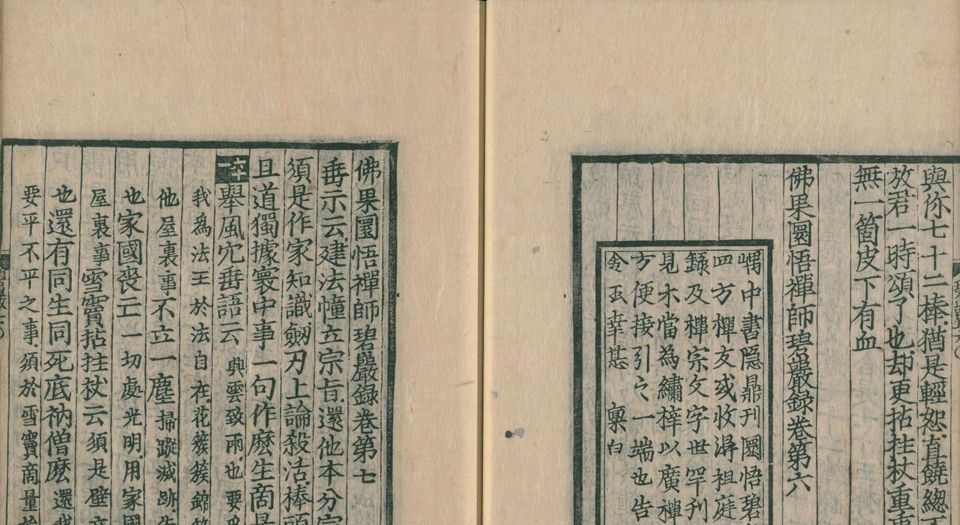 與你七十二棒猶是輕恕直饒總
放君一時頌了也却更拈拄杖重
無一箇皮下有血
佛果圜悟禪師碧巖錄卷第六
嵎中書隱鼎刊圜悟碧
四方禪友或收得祖庭
錄及禪宗文字世罕刊
見木當為繡梓以廣禪
方便接引之一端也告
令玉幸甚 稟白
佛果圜悟禪師碧巖錄卷第七
垂示云建法幢立宗旨還他本分
須是作家知識劒刃上論殺活棒頭
且道獨據寰中事一句作麽生商
六十一 舉風穴垂語云 興雲致雨也要
我為法王於法自在花簇簇錦
他屋裏事 不立一塵 掃蹤滅跡
也 家國喪亡 一切處光明用家國
屋裏事 雪竇拈拄杖云 須是壁立
也 還有同生同死底衲僧麽 還我
要平不平之事須於雪竇商量